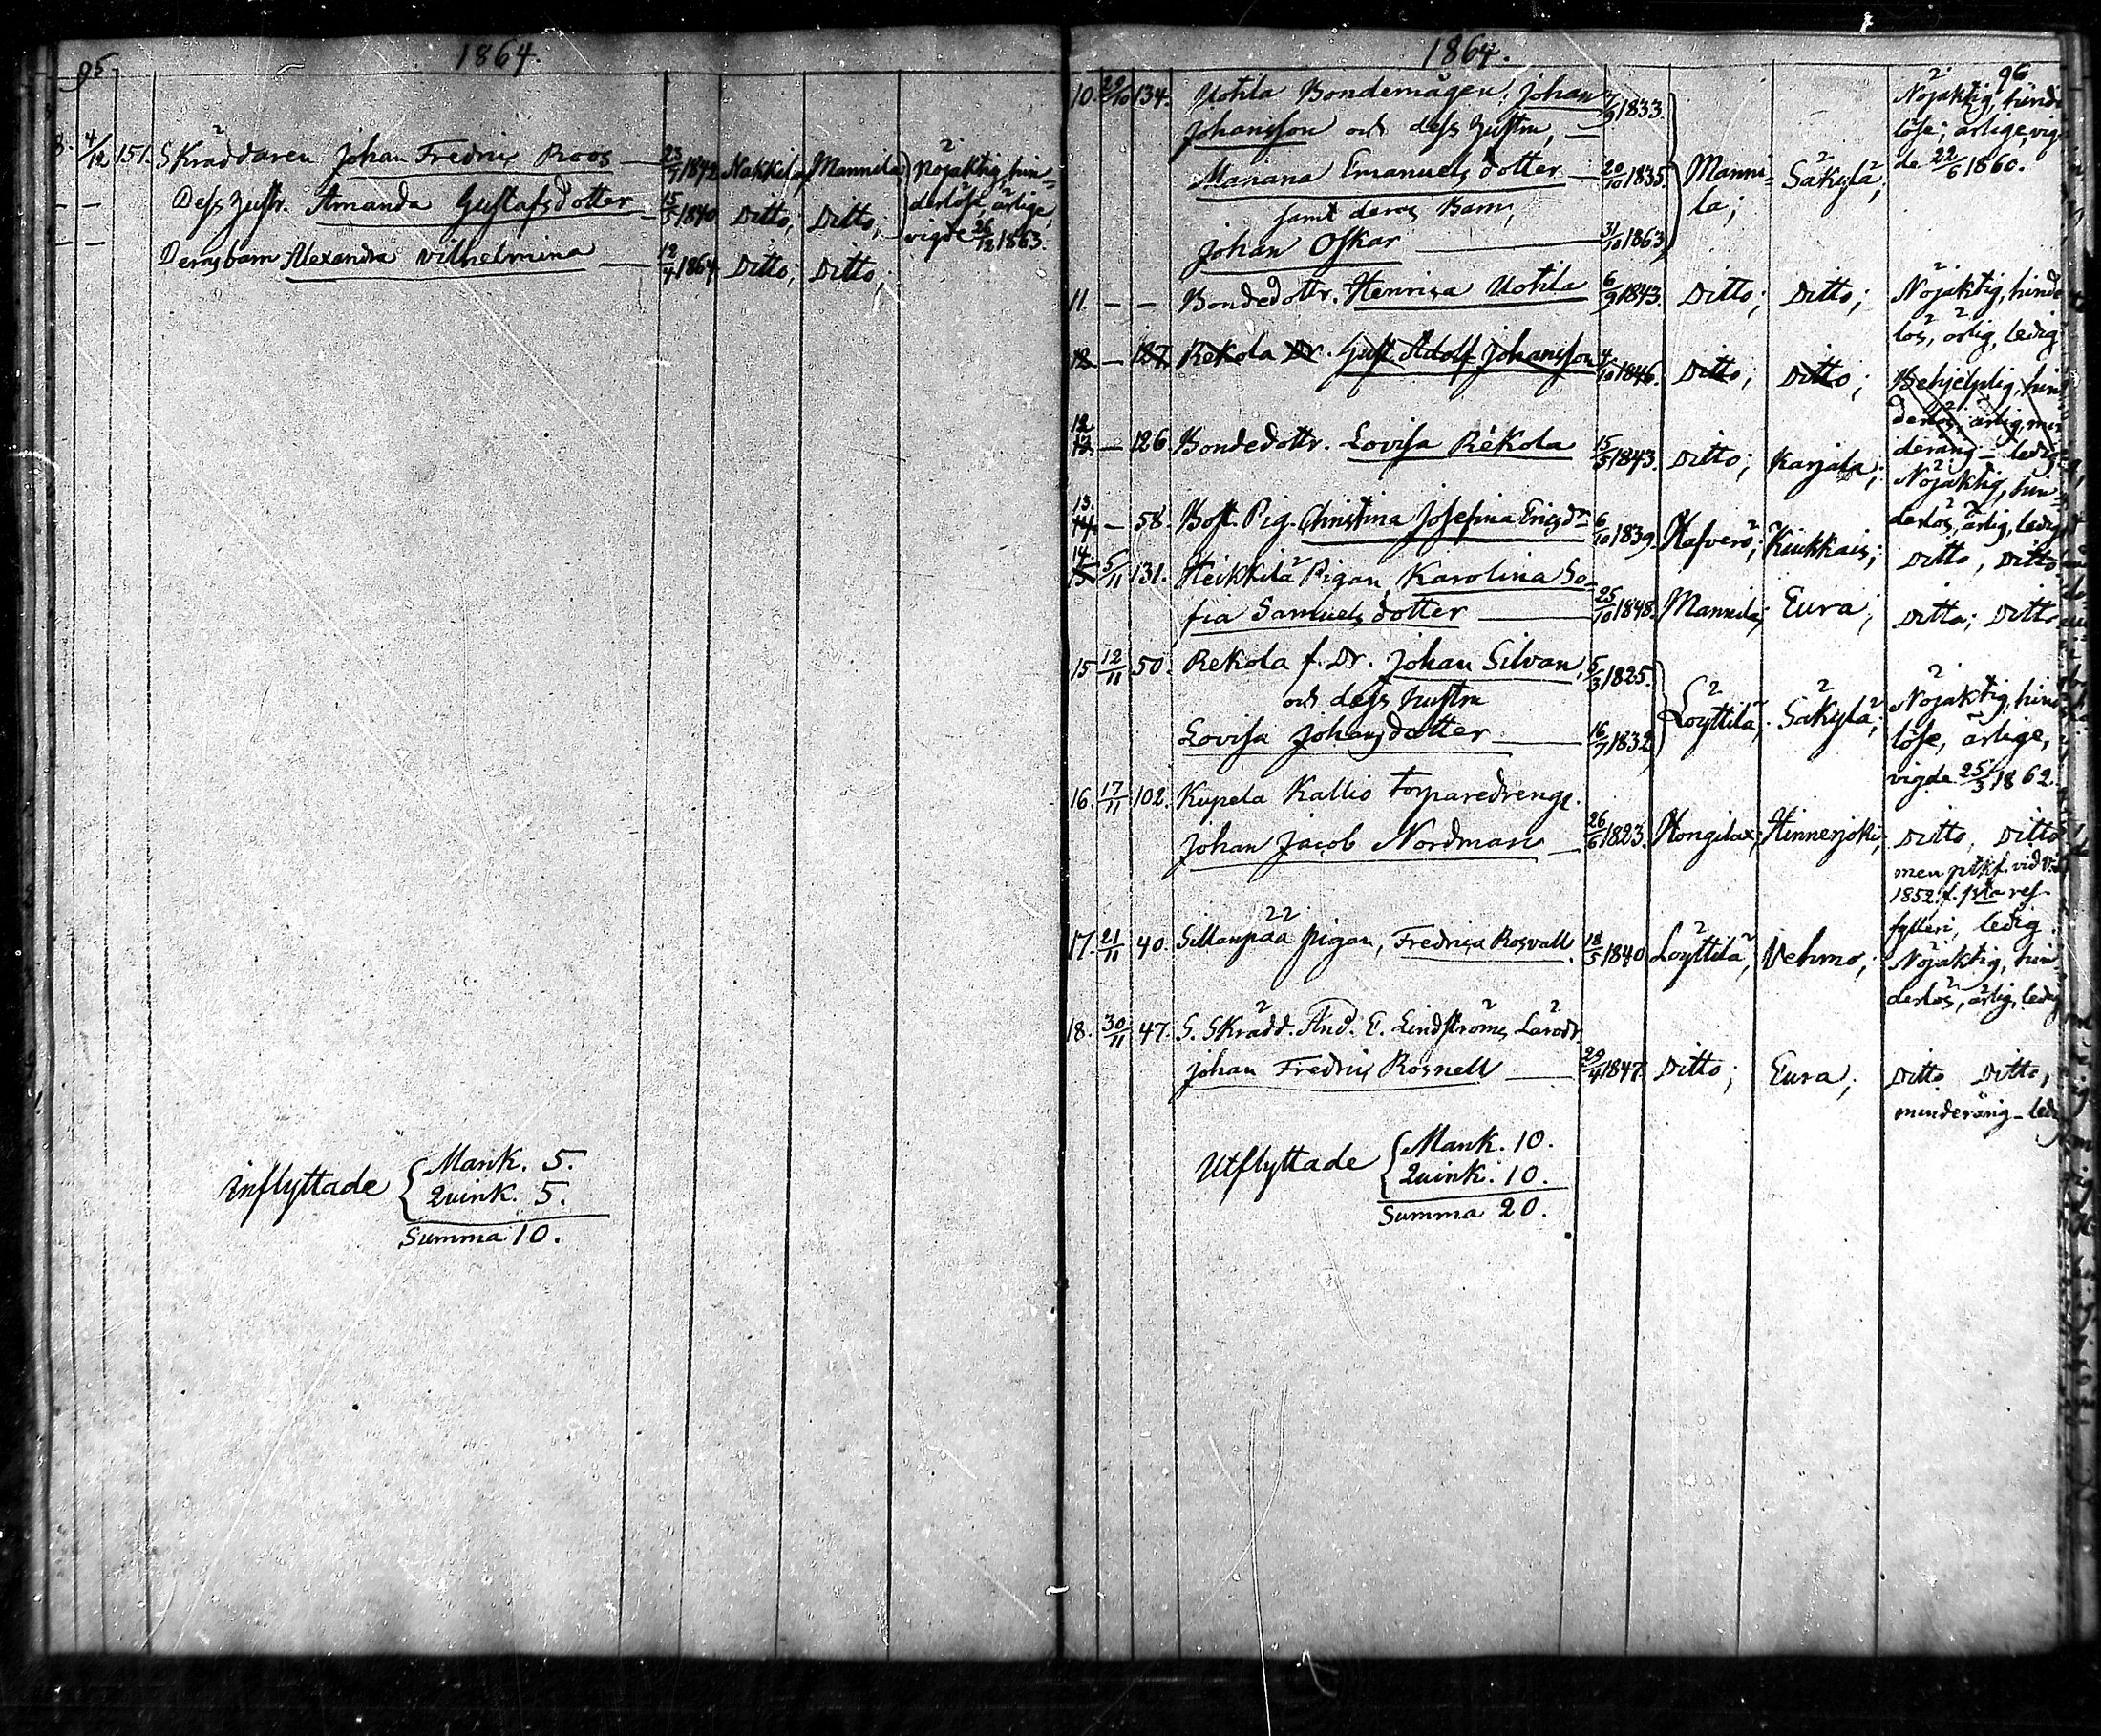 95
1864.
8. 4/12 151. Skräddaren Johan Fredric Roos — 23/7 1842 Nakkila, Mannila, Nöjaktig, hin=
— — Dess hustr. Amanda Gustafsdotter — 15/5 1840 Ditto; Ditto; derlöse, ärlige,
vigde 26/12 1863.
— — Deras barn Alexandra Vilhelmina — 12/4 1864 Ditto; Ditto;
inflyttade Mank. 5.
Quink. 5.
Summa 10.
1864.
96
10. 29/10 134. Uotila Bondemågen, Johan 7/9 1833. Nöjaktig, hinder
Johansson och dess hustru, — löse; ärlige, vig
Mariana Emanuels dotter — 20/10 1835. Manni= Säkylä; de 22/6 1860.
samt deras Barn, la;
Johan Oskar — 31/10 1863
11. — — Bondedottr. Henrica Uotila 6/9 1843. Ditto; Ditto; Nöjaktig, hinder
lös, ärlig, ledig
12 — 127. Rekola Dr. Gust. Adolf Johansson 4/10 1846. Ditto; Ditto; Behjelplig, hin
derlös, ärlig, min
derårig – ledig
12 13. — 126 Bondedottr. Lovisa Rekola 15/5 1843. Ditto; Karjala; Nöjaktig, hin=
derlös, ärlig, ledig
13. 14. — 58. Bost. Pig. Christina Josefina Ericsdr 6/10 1839. Hafverö; Kiukkais; Ditto, Ditto
14. 15 5/11 131. Heikkilä Pigan Karolina So-
fia Samuels dotter — 25/10 1848. Mannila; Eura; Ditto; Ditto
15 12/11 50. Rekola f. Dr. Johan Silvan, 5/3 1825. Nöjaktig, hinder
och dess hustru Löyttilä; Säkylä; löse, ärlige,
Lovisa Johansdotter — 16/7 1832 vigda 25/3 1862.
16. 17/11 102. Kupela Kallio torparedreng.
Johan Jacob Nordman — 26/6 1823. Hongilax; Hinnerjoki; Ditto, Ditto
men vid
1852. f. 1sta res.
fylleri, ledig.
17. 21/11 40. Sillanpää pigan, Fredrica Rosvall. 18/5 1840. Löyttilä; Vehmo; Nöjaktig, hin
derlös, ärlig, ledig
18. 30/11 47. S. Skrädd. And. E. Lindströms Lärodr.
Johan Fredric Rosnell — 29/4 1847. Ditto; Eura; Ditto Ditto,
minderårig – ledig
Utflyttade Mank. 10.
Quink. 10.
Summa 20.